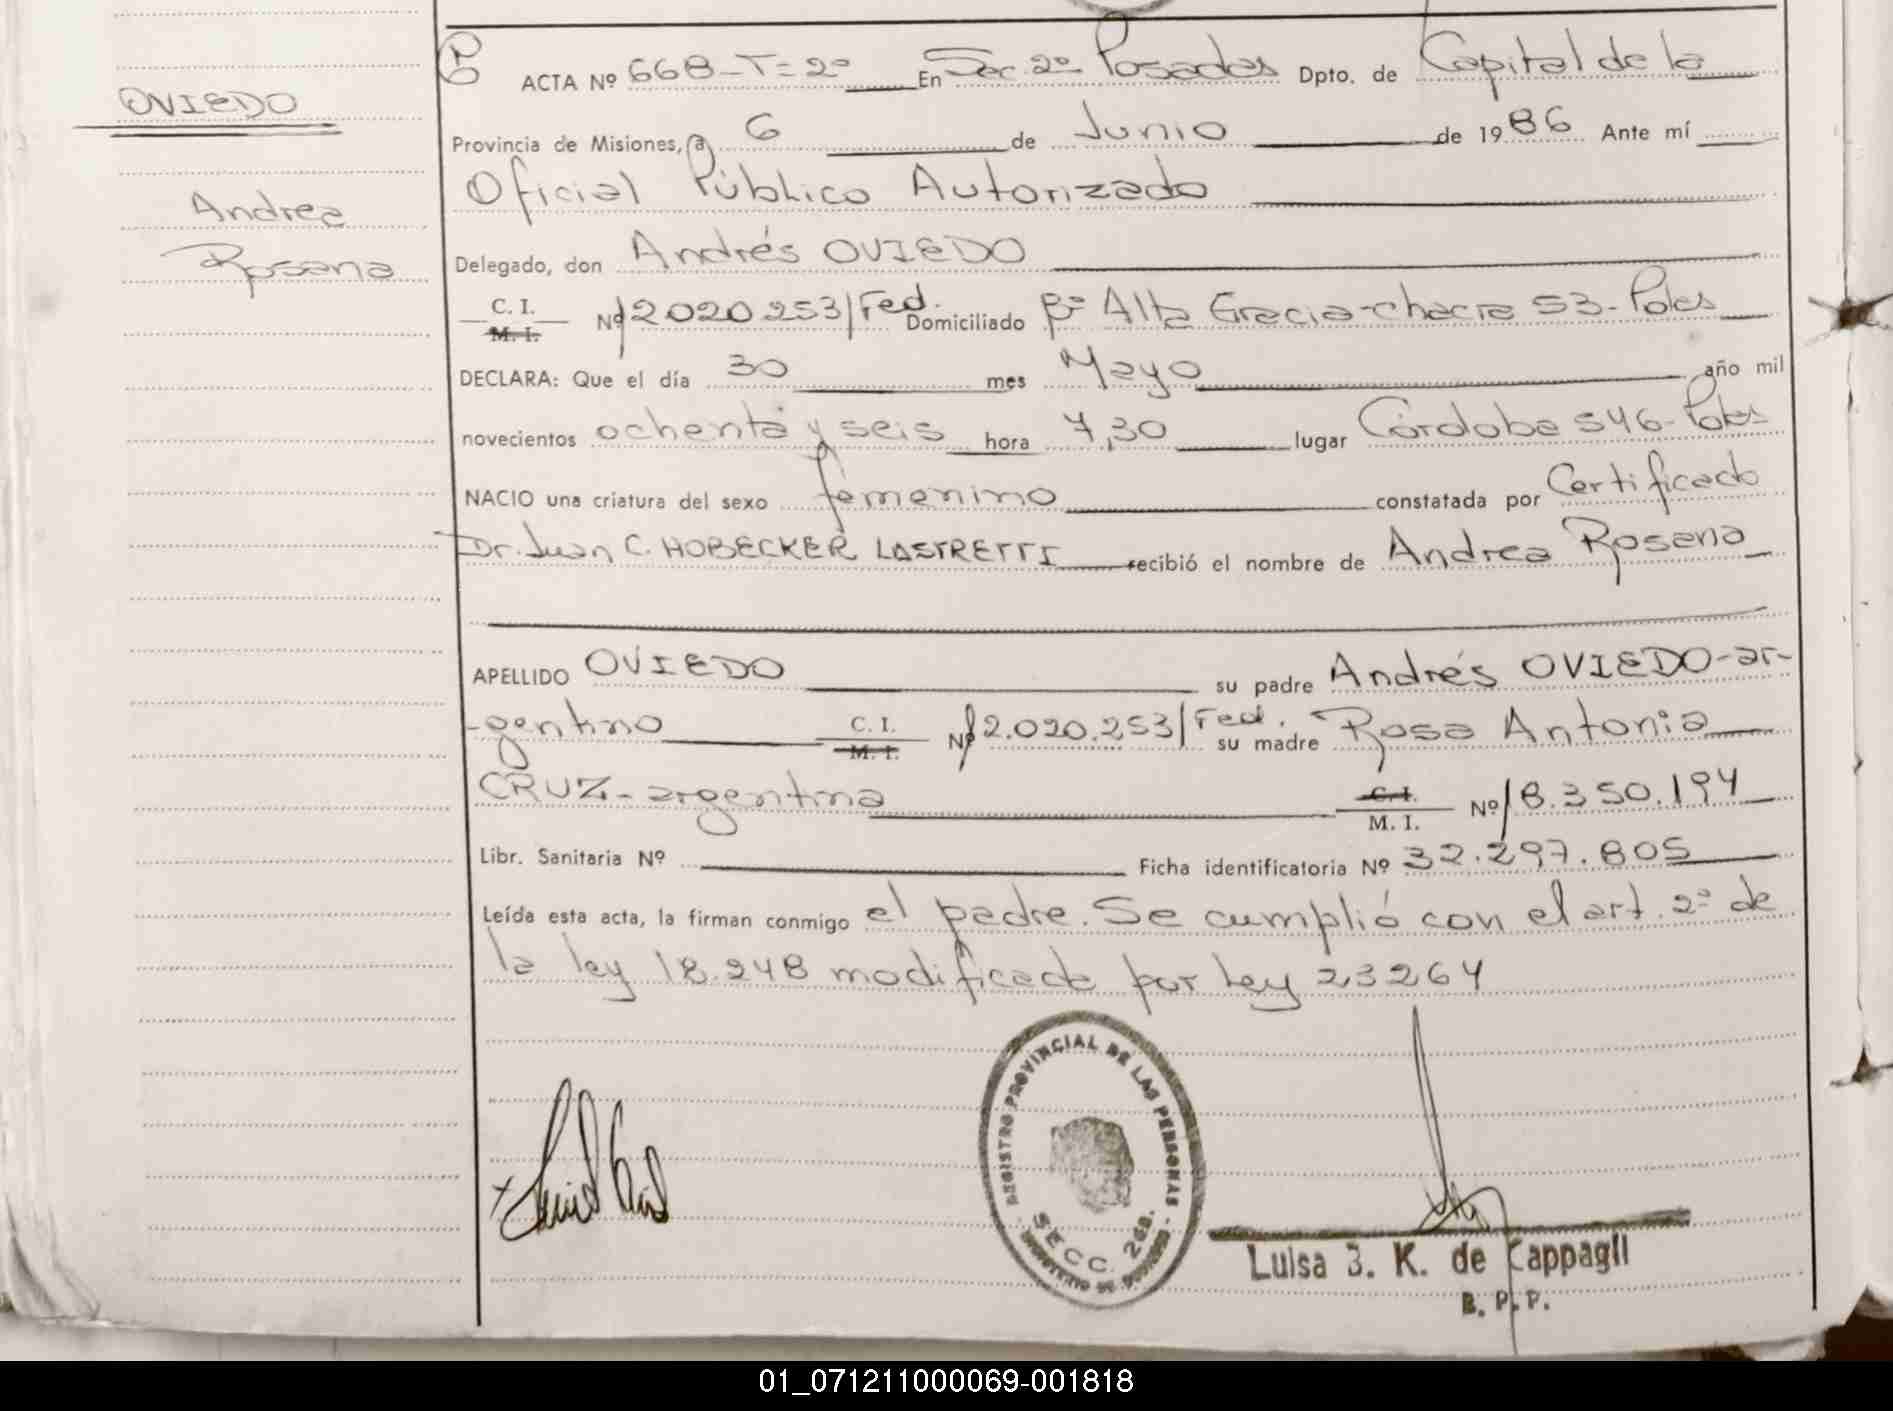 OVIEDO
Andrea
Rosana
ACTA Nº 668-T=2º En Sec. 2ª Posadas Dpto. de Capital de la
Provincia de Misiones, a 6 de Junio de 1986 Ante mí
Oficial Público Autorizado
Delegado, don Andrés OVIEDO
C. I.
M. I.
Nº 12.020.253/Fed. Domiciliado Bº Alta Gracia-chacra 53-Pdas
DECLARA: Que el día 30 mes Mayo año mil
novecientos ochenta y seis hora 7,30 lugar Córdoba 546-Pdas
NACIO una criatura del sexo femenino constatada por Certificado
Dr. Juan C. HOBECKER LASTRETTI recibió el nombre de Andrea Rosana
APELLIDO OVIEDO su padre Andrés OVIEDO-ar-
-gentino C. I. M. I. Nº 12.020.253/Fed. su madre Rosa Antonia
CRUZ-argentina C. I. M. I. Nº 18.350.194
Libr. Sanitaria Nº Ficha identificatoria Nº 32.297.805
Leída esta acta, la firman conmigo el padre. Se cumplió con el art. 2º de
la ley 18.248 modificada por Ley 23264
REGISTRO PROVINCIAL DE LAS PERSONAS
SECC. 2da.
Luisa J. K. de Cappagli
B. P. P.
01_071211000069-001818